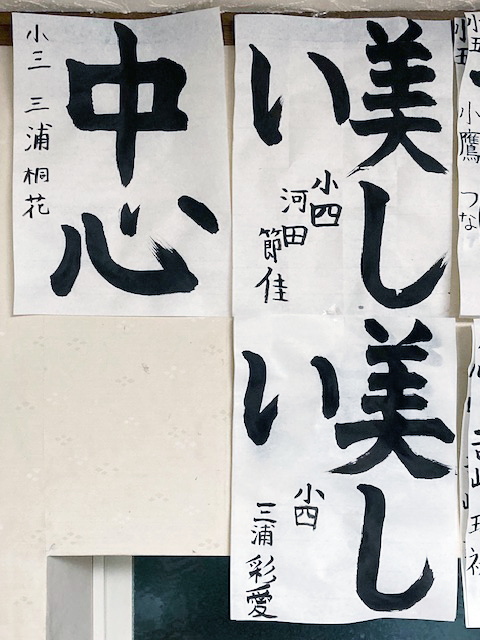 中心
小三 三浦桐花
美し
い
小四
河田
節佳
美し
い
小四
三浦彩愛
小五
小鷹
つな